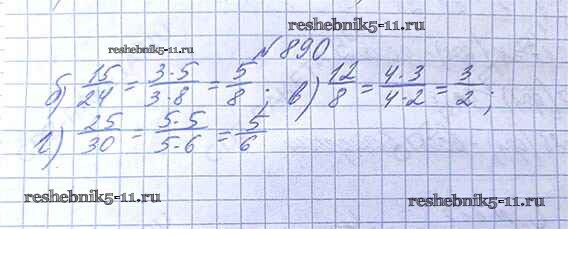 reshebnik5-11.ru
reshebnik5-11.ru
№890
б) 15/24 = 3·5/3·8 = 5/8; в) 12/8 = 4·3/4·2 = 3/2;
г) 25/30 = 5·5/5·6 = 5/6
reshebnik5-11.ru
reshebnik5-11.ru